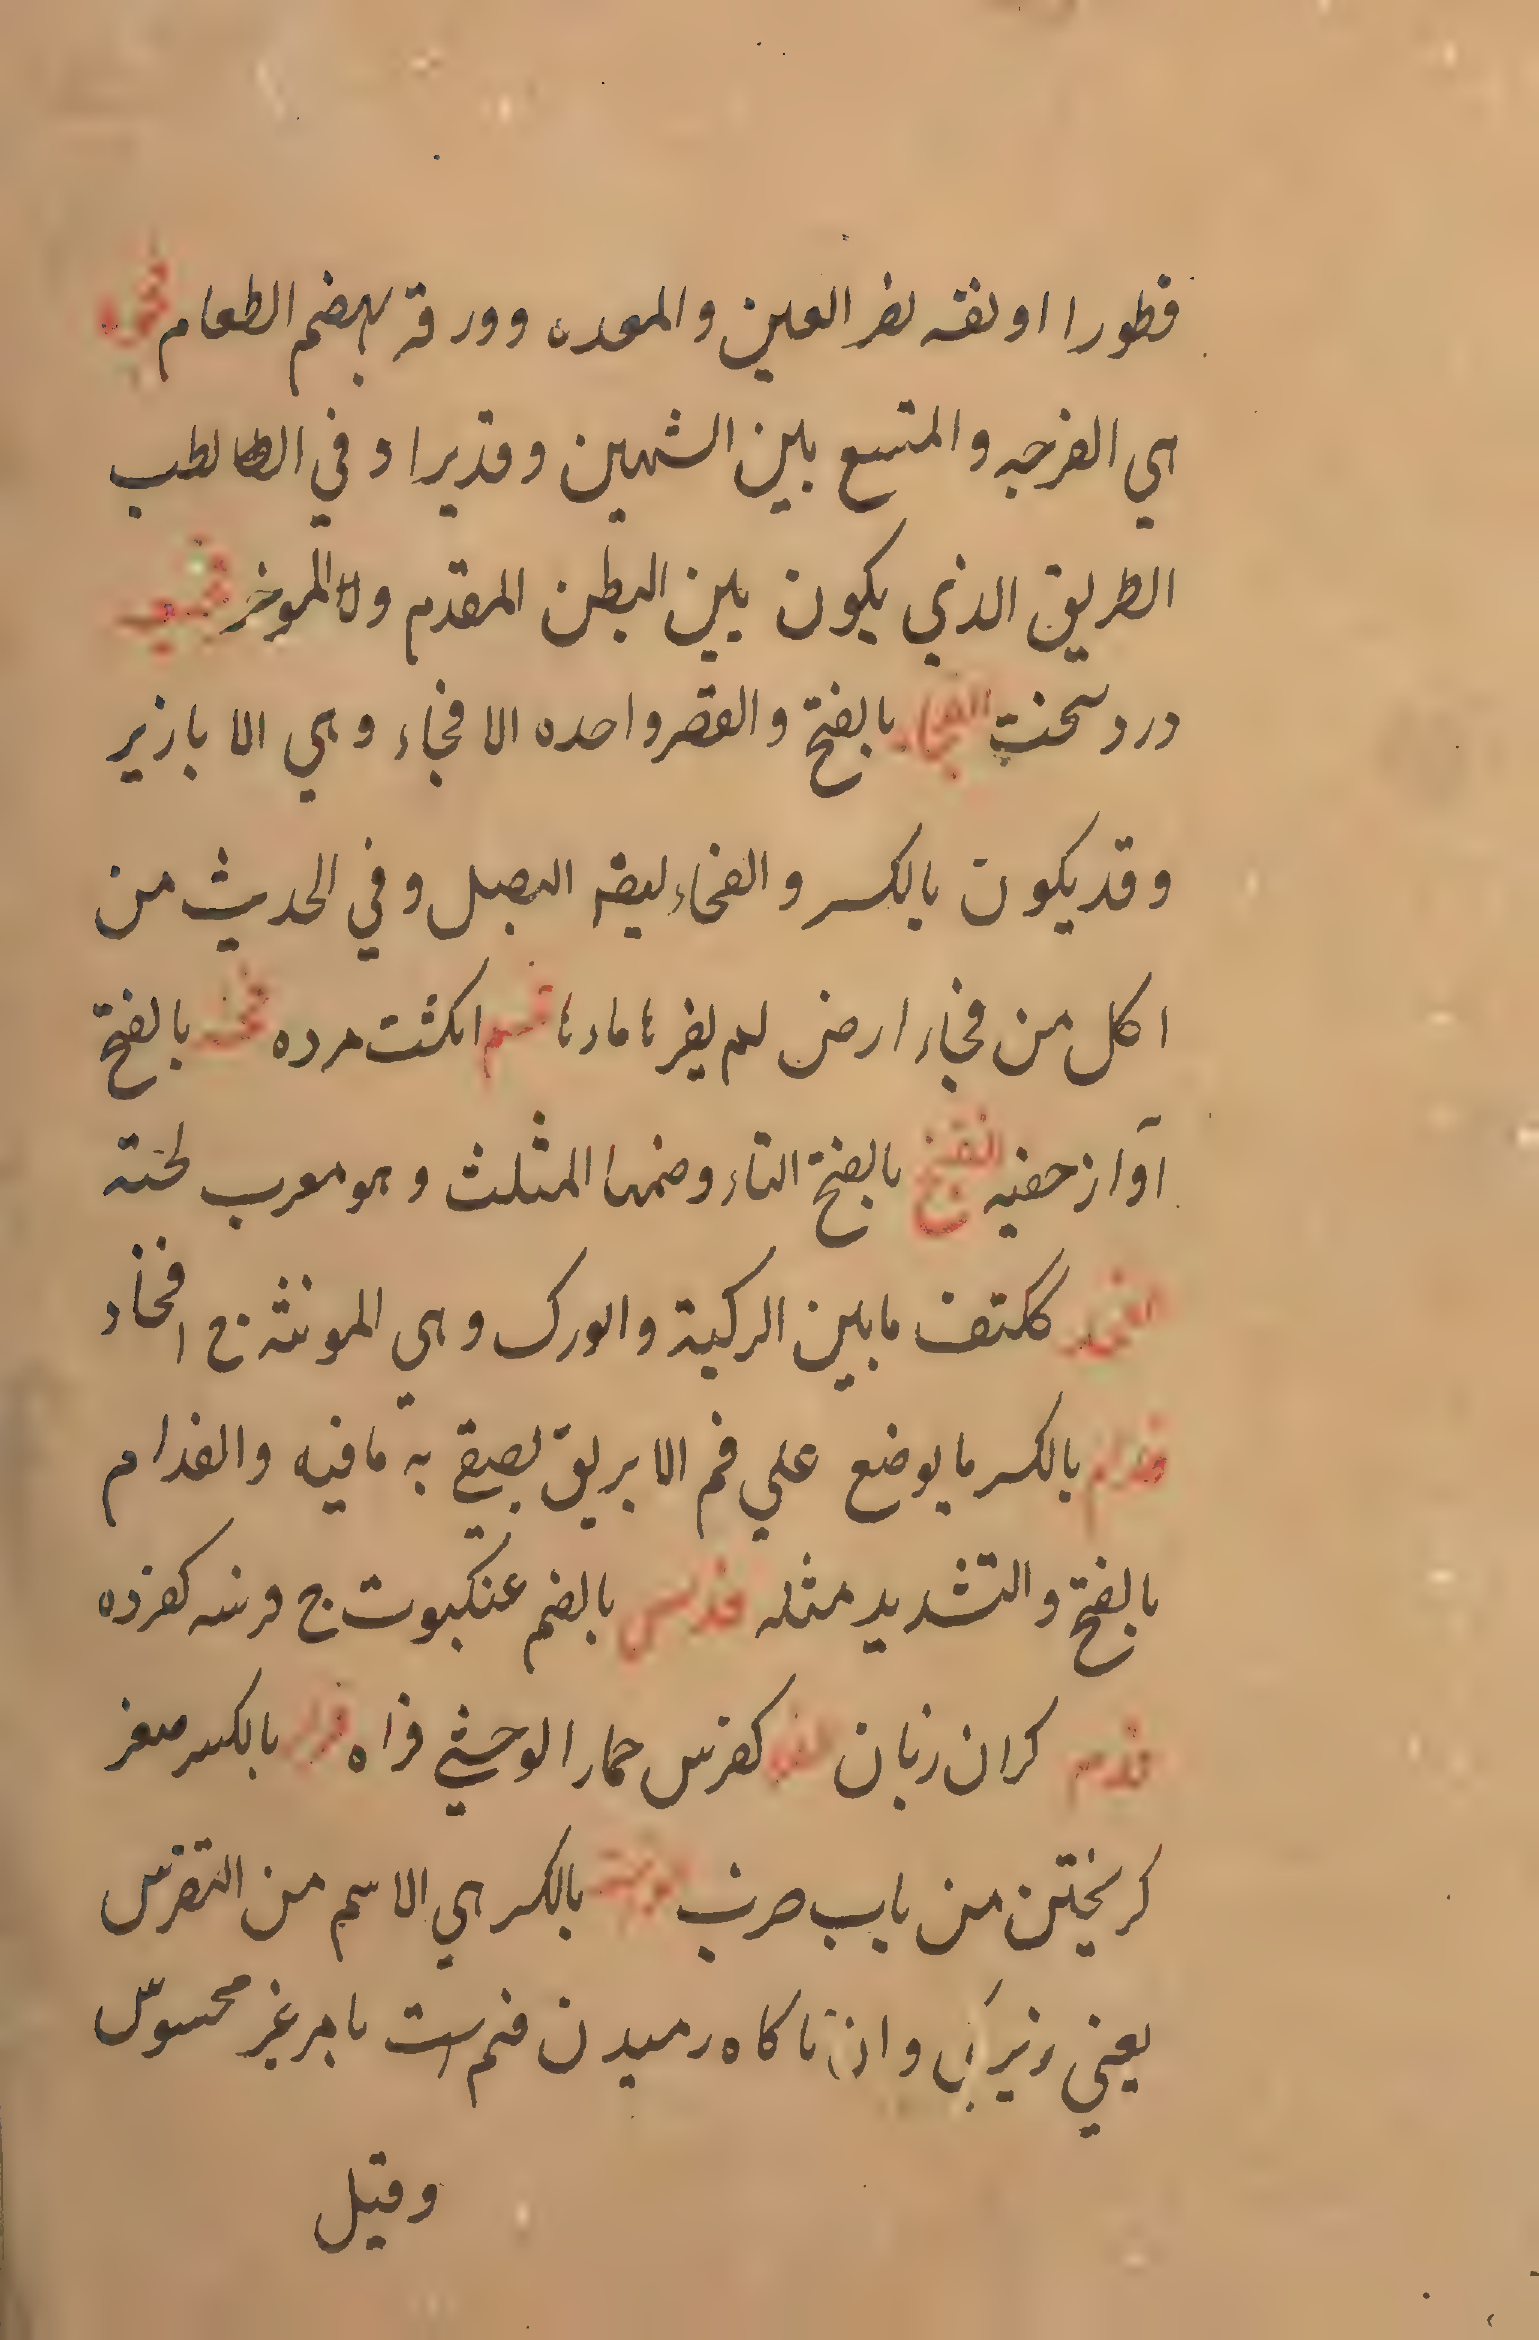 فطورا اونفه لضر العين والمعده وورقه يهضم الطعام فجوه
هي الفرجه والمتسع بين الشيين وقديراد في الطب
الطريق الذي يكون بين البطن المقدم والموخر فجيعه
درد سخت الفجاء بالفتح والقصر واحده الافجاء وهي الابازير
وقديكون بالكسر والفحاء ليضه البصل وفي الحديث من
اكل من فجاء ارض لم يضرها ماءها فحم انكشت مرده بالفتح
آواز حفيه الفختج بالفتح التاء وضمها المثلث وهو معرب لخته
الفخذ ككتف مابين الركبة والورك وهي المونثه ج افخاذ
فدام بالكسر مايوضع علي فم الابريق ليصفي به مافيه والفدام
بالفتح والتشديد مثله فدس بالضم عنكبوت ج فدسه كفرده
فدم كران زبان كفرس حمار الوحشي فراه فرار بالكسر صغر
كريختن من باب ضرب فرسه بالكسر هي الاسم من التفرس
يعني زيركي و ان ناكاه رميدن فهم است بامر غير محسوس
وقيل